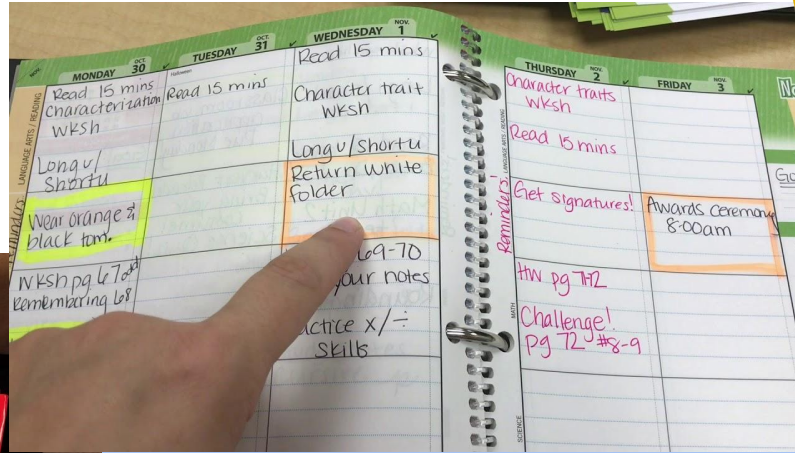 NOV.
MONDAY OCT. 30
Read 15 mins
Characterization
WKSh
Long u/
Short u
Wear orange &
black tom.
WKSh pg 67 odd
Remembering 68
TUESDAY OCT. 31
Halloween
Read 15 mins
WEDNESDAY NOV. 1
Read 15 mins
Character trait
WKSh
Long u/Short u
Return white
folder
69-70
your notes
x/÷
Skills
THURSDAY NOV. 2
Character traits
WKSh
Read 15 mins
Get signatures!
HW pg 71-72
Challenge!
pg 72 #8-9
FRIDAY NOV. 3
Awards ceremony
8:00am
LANGUAGE ARTS / READING
LANGUAGE ARTS / READING
Reminders!
MATH
SCIENCE